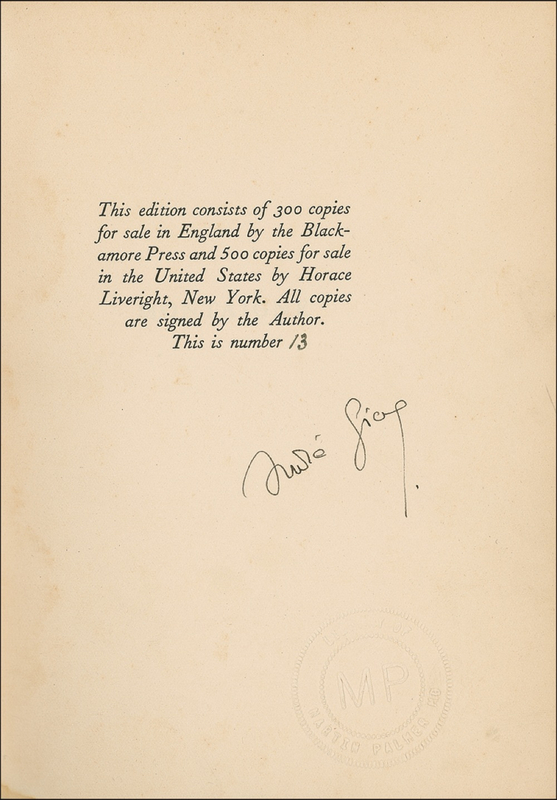 This edition consists of 300 copies
for sale in England by the Black-
amore Press and 500 copies for sale
in the United States by Horace
Liveright, New York. All copies
are signed by the Author.
This is number 13
André Gide
MP